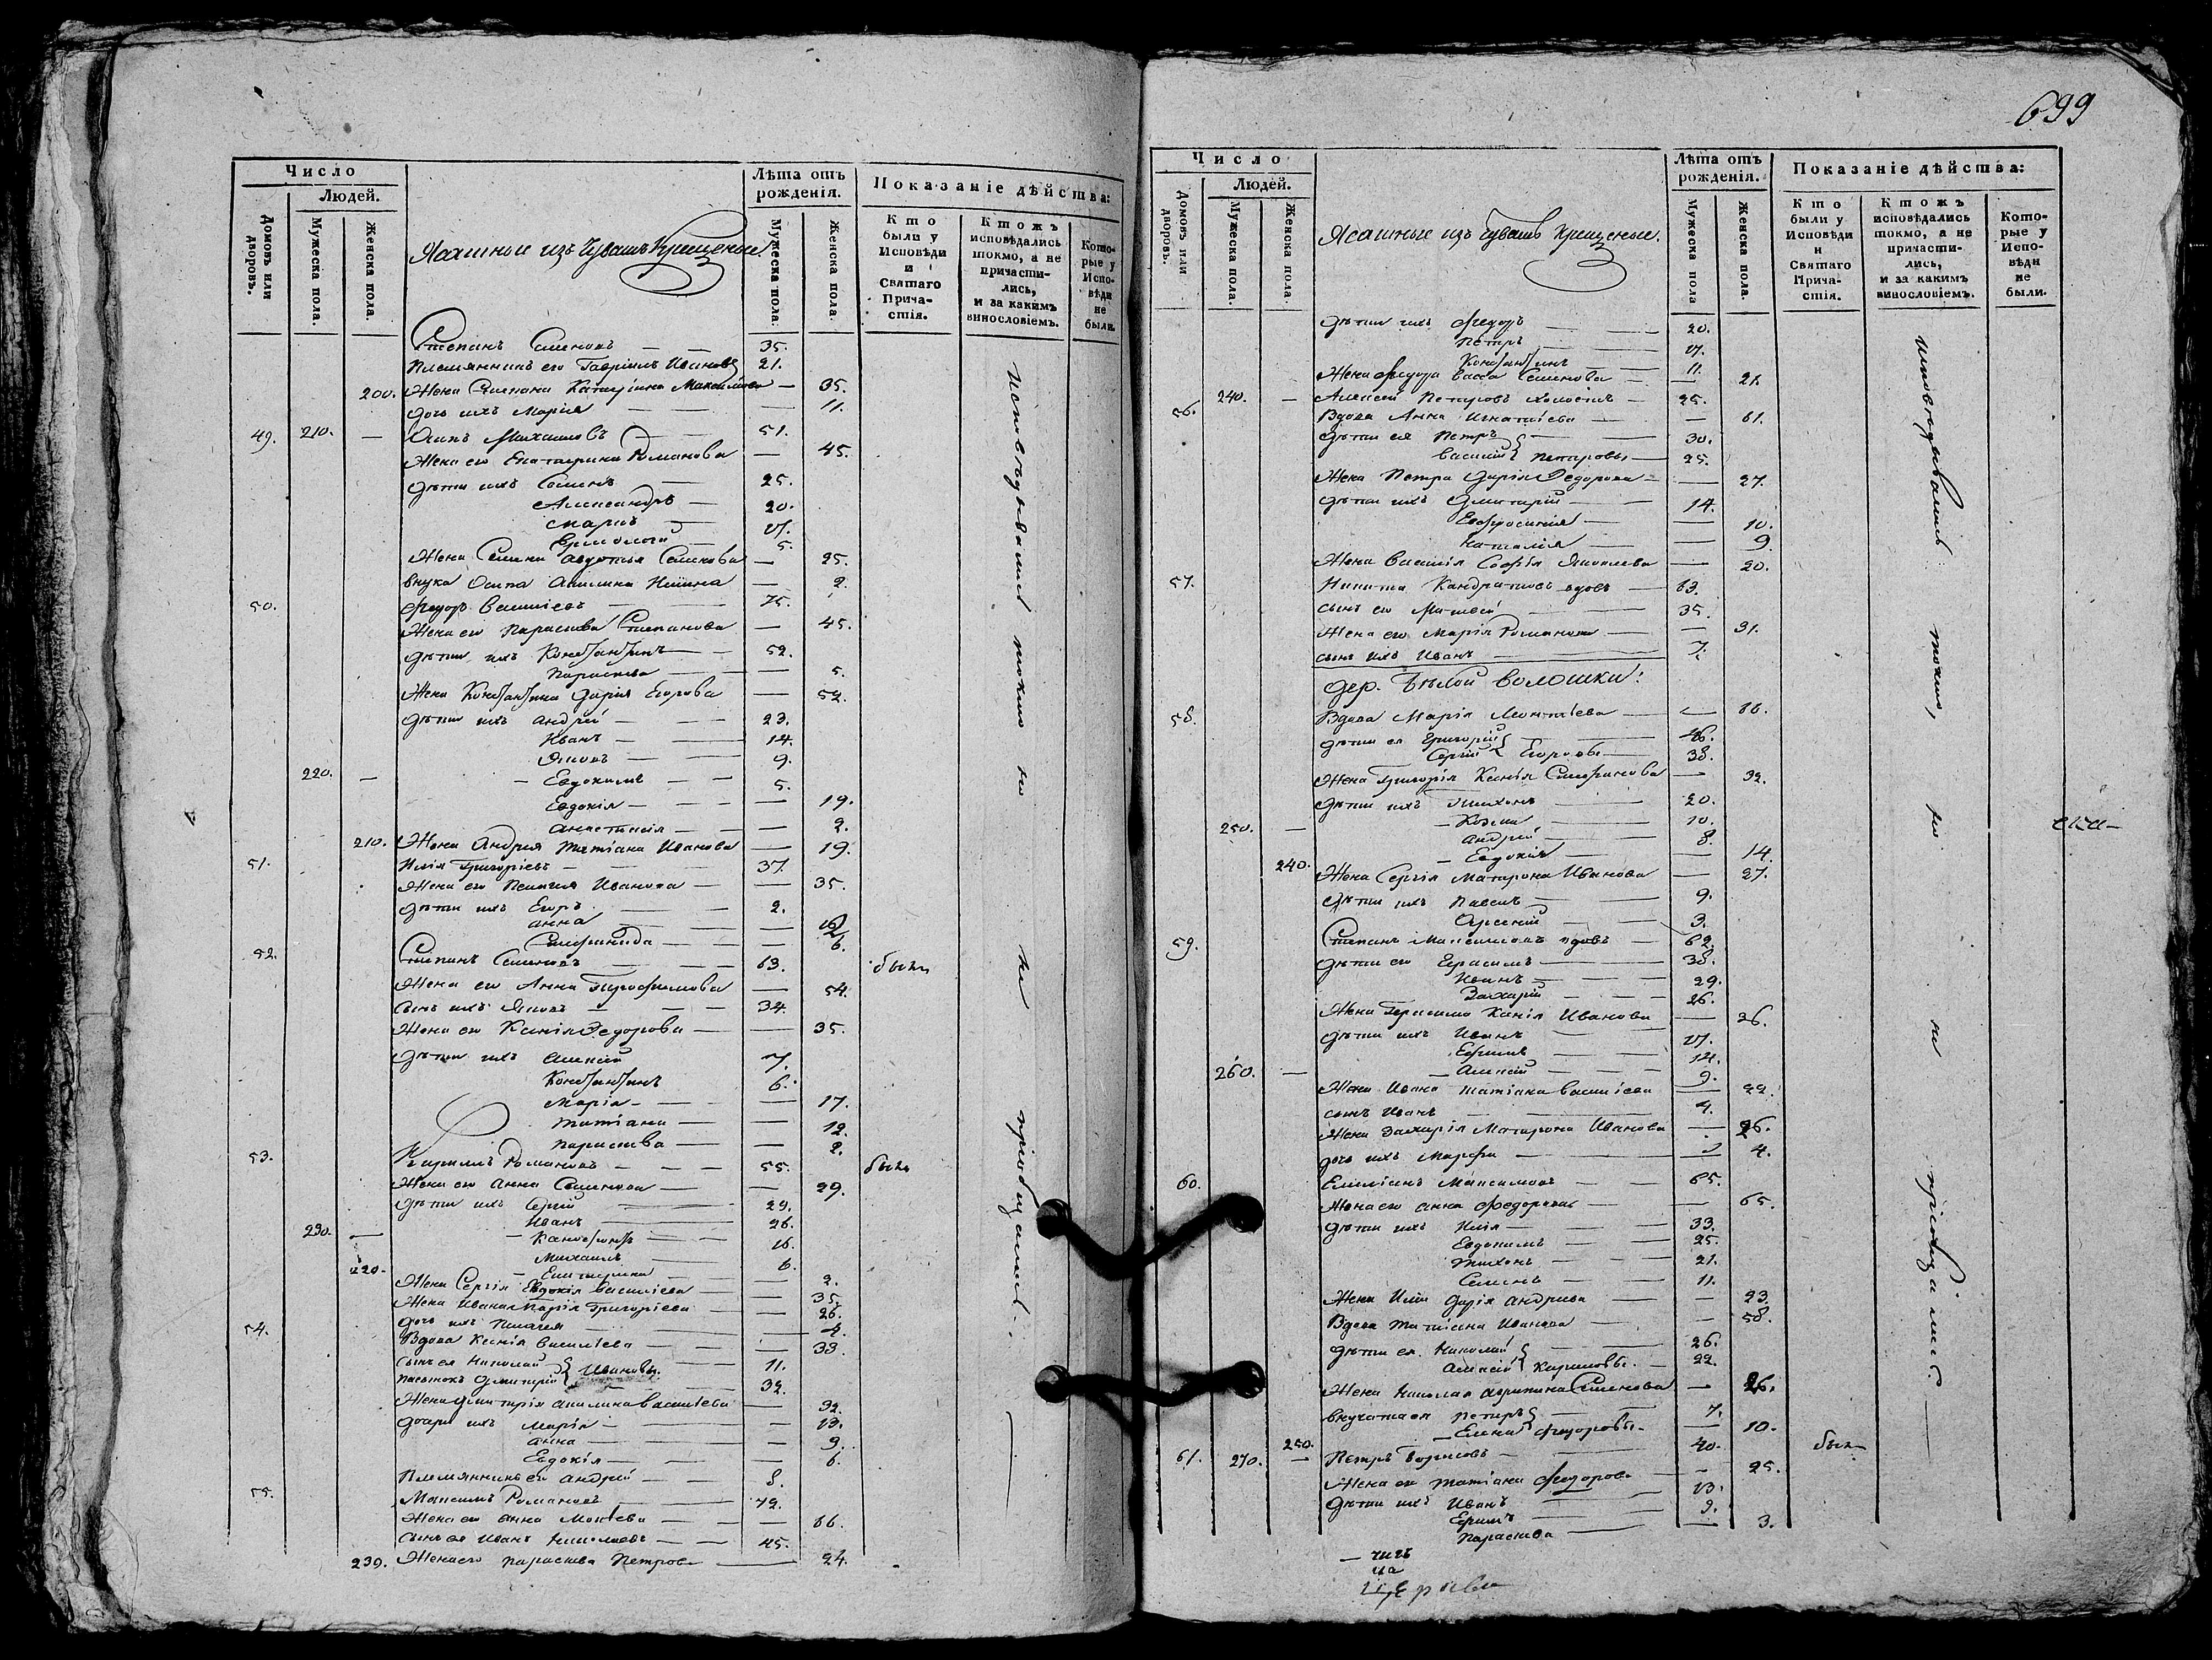 Число
Людей.
Домовъ или дворовъ.
Мужеска пола.
Женска пола.
Ясашные изъ Чувашъ Крещеные.
Лѣта отъ рожденія.
Мужеска пола.
Женска пола.
Показаніе дѣйства:
Кто были у Исповѣди и Святаго Прича-стія.
Ктожъ исповѣдались токмо, а не причасти-лись, и за какимъ винословіемъ.
Кото-рые у Испо-вѣди не были.
Степанъ Семеновъ — 35.
Племянникъ его Гавріилъ Ивановъ 21.
200. Жена Степана Катерина Максимова — 35.
дочь ихъ Марія — 11.
49. 210. — Осипъ Михайловъ — 51.
Жена его Екатерина Романова — 45.
дѣти ихъ Семенъ — 25.
Александръ — 20.
Марко — 17.
Ермолай — 5.
Жена Семена Авдотья Семенова — 25.
внука Осипа Акилина — 2.
50. Федоръ Васильевъ — 75.
Жена его Параскева Степанова — 45.
дѣти ихъ Константинъ — 52.
Параскева — 5.
Жена Константина Дарья Егорова — 52.
дѣти ихъ Андрей — 23.
Иванъ — 14.
Яковъ — 9.
220. — Евдокимъ — 5.
Евдокія — 19.
Анастасія — 2.
210. Жена Андрея Татіана Иванова — 19.
51. Илія Григорьевъ — 37.
Жена его Пелагея Иванова — 35.
дѣти ихъ Егоръ — 2.
Анна —
Степанида — 6.
52. Степанъ Семеновъ — 63. были
Жена его Анна Трофимова — 54.
сынъ ихъ Яковъ — 34.
Жена его Ксенія Федорова — 35.
дѣти ихъ Алексѣй 7.
Константинъ 6.
Марія — 17.
Татіана — 12.
Параскева — 2.
53. Кирилъ Романовъ — 55. были
Жена его Анна Семенова — 29.
дѣти ихъ Сергѣй — 29.
Иванъ — 26.
230. — Константинъ — 16.
Михаилъ — 6.
220. — Екатерина — 2.
Жена Сергія Евдокія Васильева — 35.
Жена Ивана Марія Григорьева — 26.
дочь ихъ Пелагея —
54. Вдова Ксенія Васильева — 33.
сынъ ея Николай } Ивановы — 11.
пасынокъ Дмитрій — 32.
Жена Дмитрія Акилина Васильева — 32.
дочери ихъ Марія — 13.
Анна — 9.
Евдокія — 6.
Племянникъ ея Андрей — 8.
55. Максимъ Романовъ — 42.
Жена его Анна — 66.
сынъ ея Иванъ Николаевъ — 45.
230. Жена его Параскева Петрова — 24.
исповѣдывались токмо но не пріобщались.
699
Число
Людей.
Домовъ или дворовъ.
Мужеска пола.
Женска пола.
Ясашные изъ Чувашъ Крещеные.
Лѣта отъ рожденія.
Мужеска пола
Женска пола.
Показаніе дѣйства:
Кто были у Исповѣди и Святаго Прича-стія.
Ктожъ исповѣдались токмо, а не причасти-лись, и за какимъ винословіемъ.
Кото-рые у Испо-вѣди не были.
дѣти ихъ Федоръ — 20.
Петръ — 17.
Константинъ — 11.
Жена Федора Васса Семенова — 21.
240. — Алексѣй Петровъ холостъ — 25.
56. Вдова Анна Игнатіева — 61.
дѣти ея Петръ } — 30.
Василій } Петровы — 25.
Жена Петра Дарія Федорова — 27.
дѣти ихъ Дмитрій — 14.
Евфросинія — 10.
Наталія — 9.
Жена Василія Софія Яковлева — 20.
57. Никита Кандратьевъ вдовъ — 63.
сынъ его Матвей — 35.
Жена его Марія Романова — 31.
сынъ ихъ Иванъ — 7.
Дер. Бѣлой Воложки:
58. Вдова Марія Леонтіева —
дѣти ея Григорій } — 46.
Сергій } Егоровы — 38.
Жена Григорія Ксенія — 32.
дѣти ихъ Тихонъ — 20.
250. — Козма — 10.
Андрей — 8.
— Евдокія — 14.
240. Жена Сергія Матрона Иванова — 27.
дѣти ихъ Павелъ — 9.
Арсеній — 3.
59. Степанъ Максимовъ вдовъ — 62.
дѣти его Герасимъ — 38.
Иванъ — 29.
Захарій — 26.
Жена Герасима Ксенія Иванова — 36.
дѣти ихъ Иванъ — 17.
Ефимъ — 14.
260. — Алексѣй — 9.
Жена Ивана Татіана Васильева — 22.
сынъ Иванъ — 4.
Жена Захарія Матрона Иванова — 26.
дочь ихъ Марфа — 4.
60. Емиліанъ Максимовъ — 65.
Жена его Анна Федорова — 65.
дѣти ихъ Илія — 33.
Евдокимъ — 25.
Тихонъ — 21.
Семенъ — 11.
Жена Иліи Дарія Андреева — 23.
Вдова Татіана Иванова — 58.
дѣти ея Николай } — 26.
Алексѣй } Кириловы — 22.
Жена Николая Агрипина Семенова — 26.
внучата ея Петръ } — 7.
250. — Елена } Федоровы — 10.
61. 270. — Петръ Борисовъ — 40. были
Жена его Татіана Федорова — 25.
дѣти ихъ Иванъ — 13.
Ефимъ — 9.
Параскева — 3.
исповѣдывались токмо, но не пріобщались